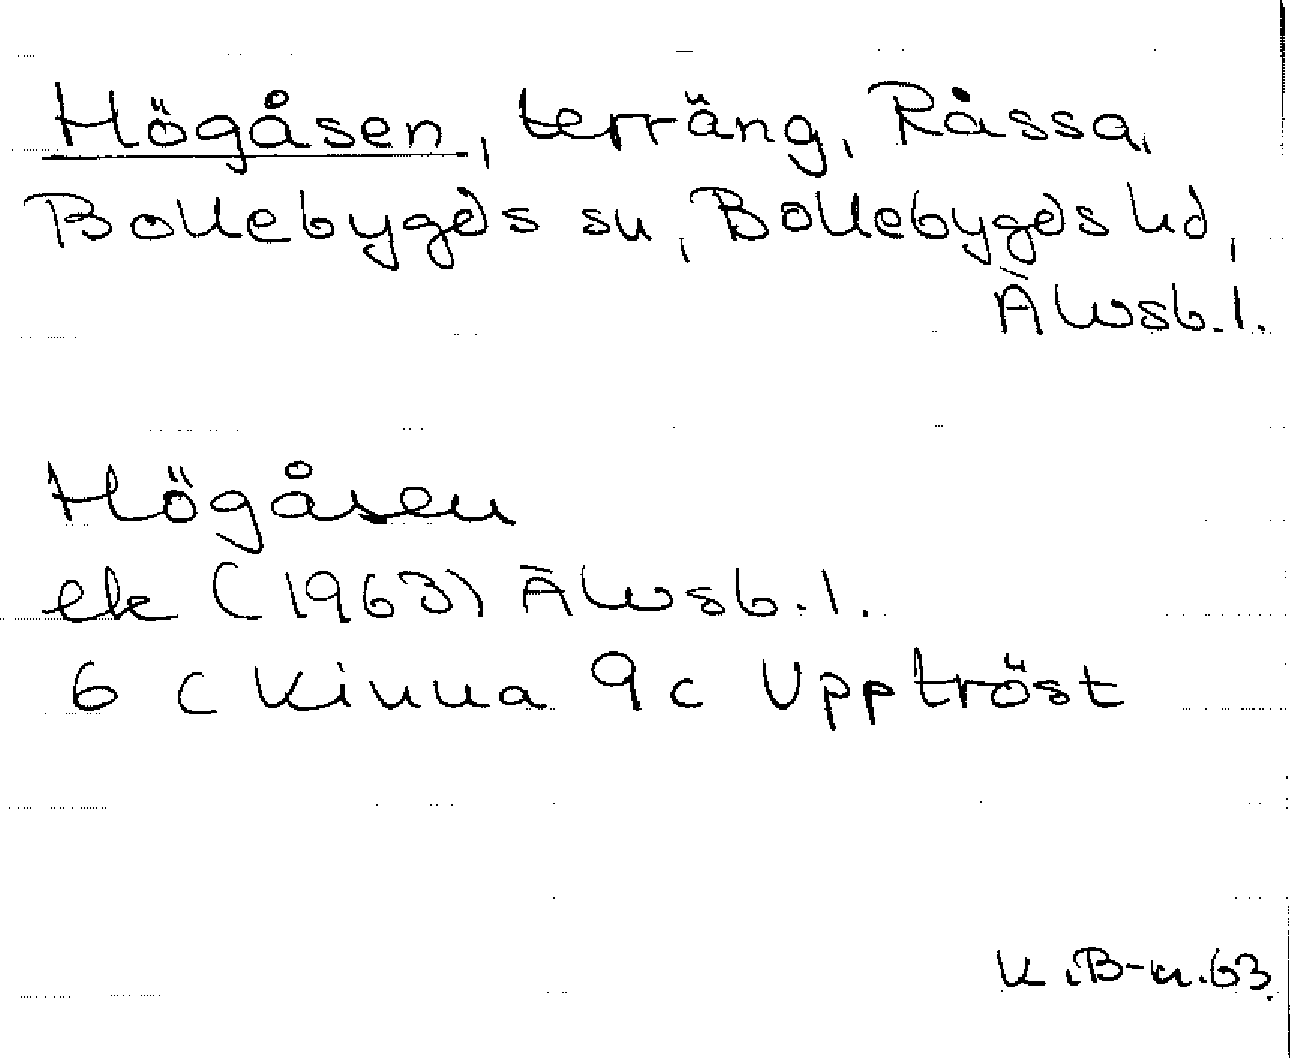 Högåsen, terräng, Råssa,
Bollebygds sn, Bollebygds hd,
Älvsb.l.
Högåsen
ek (1963) Älvsb.l.
6 c Kinna 9c Upptröst
K.B-n.63.